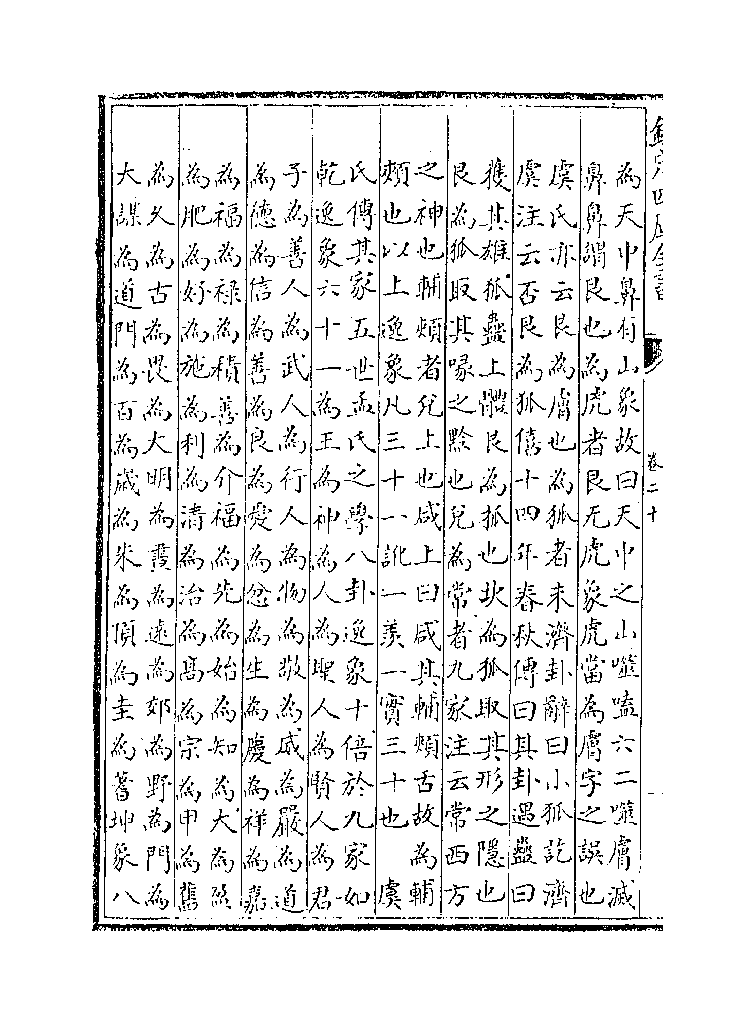 欽定四庫全書
卷二十
為天中鼻有山象故曰天中之山噬嗑六二噬膚滅
鼻鼻謂艮也為虎者艮无虎象虎當為膚字之誤也
虞氏亦云艮為膚也為狐者未濟卦辭曰小狐訖濟
虞注云否艮為狐僖十四年春秋傳曰其卦遇蠱曰
獲其雄狐蠱上體艮為狐也坎為狐取其形之隱也
艮為狐取其喙之黔也兌為常者九家注云常西方
之神也輔頰者兌上也咸上曰咸其輔頰古故為輔
頰也以上逸象凡三十一訛一羡一實三十也　虞
氏傳其家五世孟氏之學八卦逸象十倍於九家如
乾逸象六十一為王為神為人為聖人為賢人為君
子為善人為武人為行人為物為敬為威為嚴為道
為德為信為善為良為愛為忿為生為慶為祥為嘉
為福為祿為積善為介福為先為始為知為大為盈
為肥為好為施為利為清為治為高為宗為甲為舊
為久為古為畏為大明為晝為遠為郊為野為門為
大謀為道門為百為歲為朱為頂為圭為蓍坤象八